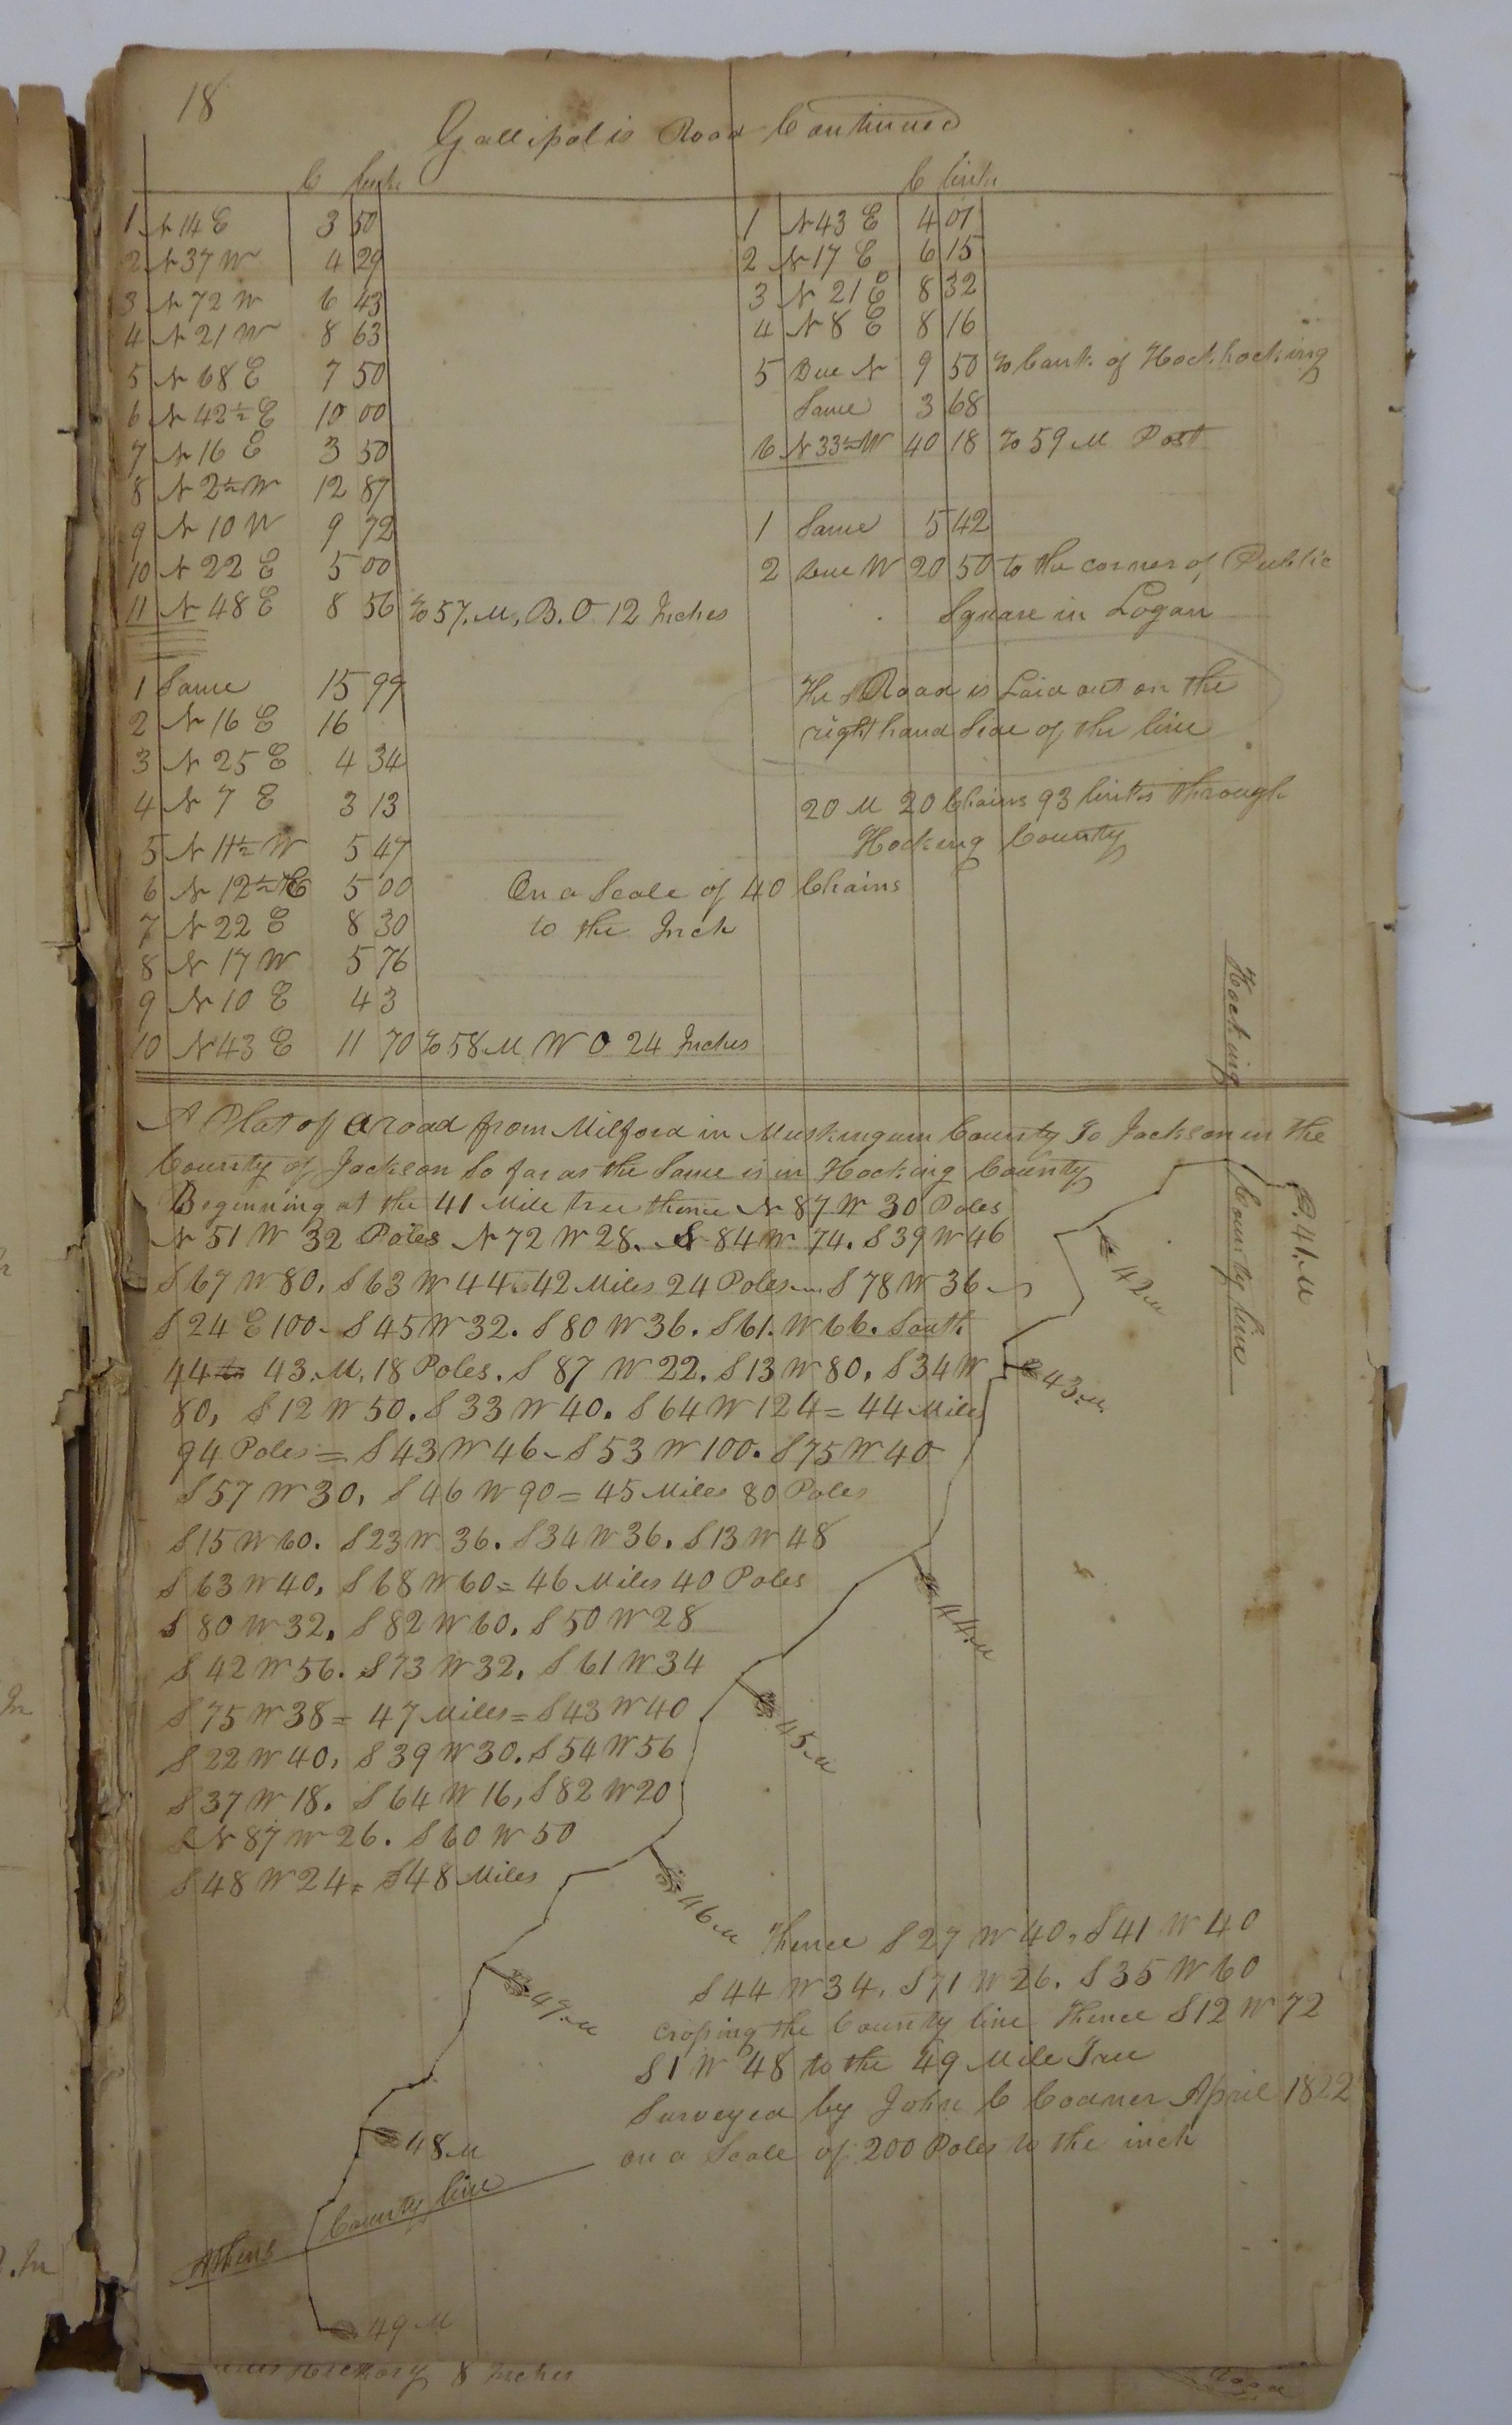 18
Gallipolis Road Continued
C links
1 N 14 E 3 50
2 N 37 W 4 29
3 N 72 W 6 43
4 N 21 W 8 63
5 N 68 E 7 50
6 N 42½ E 10 00
7 N 16 E 3 50
8 N 2½ W 12 87
9 N 10 W 9 72
10 N 22 E 5 00
11 N 48 E 8 56 to 57. M, B. O 12 Inches
1 Same 15 99
2 N 16 E 16
3 N 25 E 4 34
4 N 7 E 3 13
5 N 11½ W 5 47
6 N 12½ E 5 00
7 N 22 E 8 30
8 N 17 W 5 76
9 N 10 E 4 3
10 N 43 E 11 70 to 58 M W O 24 Inches
C links
1 N 43 E 4 01
2 N 17 E 6 15
3 N 21 E 8 32
4 N 8 E 8 16
5 Due N 9 50 to bank of Hockhocking
Same 3 68
6 N 33½ W 40 18 to 59 M Post
1 Same 5 42
2 Due W 20 50 to the corner of Public
Square in Logan
The Road is Laid out on the
right hand Side of the line
20 M 20 Chains 93 links through
Hocking County
On a Scale of 40 Chains
to the Inch
A Plat of a road from Milford in Muskingum County To Jackson in the
County of Jackson So far as the Same is in Hocking County
Beginning at the 41 Mile tree thence N 87 W 30 Poles
N 51 W 32 Poles N 72 W 28. S 84 W 74. S 39 W 46
S 67 W 80, S 63 W 44 = 42 Miles 24 Poles S 78 W 36
S 24 E 100 S 45 W 32. S 80 W 36. S 61. W 66. South
44 to 43. M, 18 Poles. S 87 W 22. S 13 W 80, S 34 W
80, S 12 W 50. S 33 W 40. S 64 W 124 = 44 Miles
94 Poles = S 43 W 46 S 53 W 100. S 75 W 40
S 57 W 30, S 46 W 90 = 45 Miles 80 Poles
S 15 W 60. S 23 W 36. S 34 W 36. S 13 W 48
S 63 W 40, S 68 W 60 = 46 Miles 40 Poles
S 80 W 32, S 82 W 60. S 50 W 28
S 42 W 56. S 73 W 32, S 61 W 34
S 75 W 38 = 47 Miles = S 43 W 40
S 22 W 40, S 39 W 30. S 54 W 56
S 37 W 18. S 64 W 16, S 82 W 20
N 87 W 26. S 60 W 50
S 48 W 24 = 48 Miles
Thence S 27 W 40, S 41 W 40
S 44 W 34, S 71 W 26. S 35 W 60
crossing the County line Thence S 12 W 72
S 1 W 48 to the 49 Mile Tree
Surveyed by John C Codner April 1822
on a Scale of 200 Poles to the inch
Hocking County line
41. M
42 M
43. M
44. M
45. M
46 M
47. M
48 M
Athens County line
49 M
Hickory 8 Inches